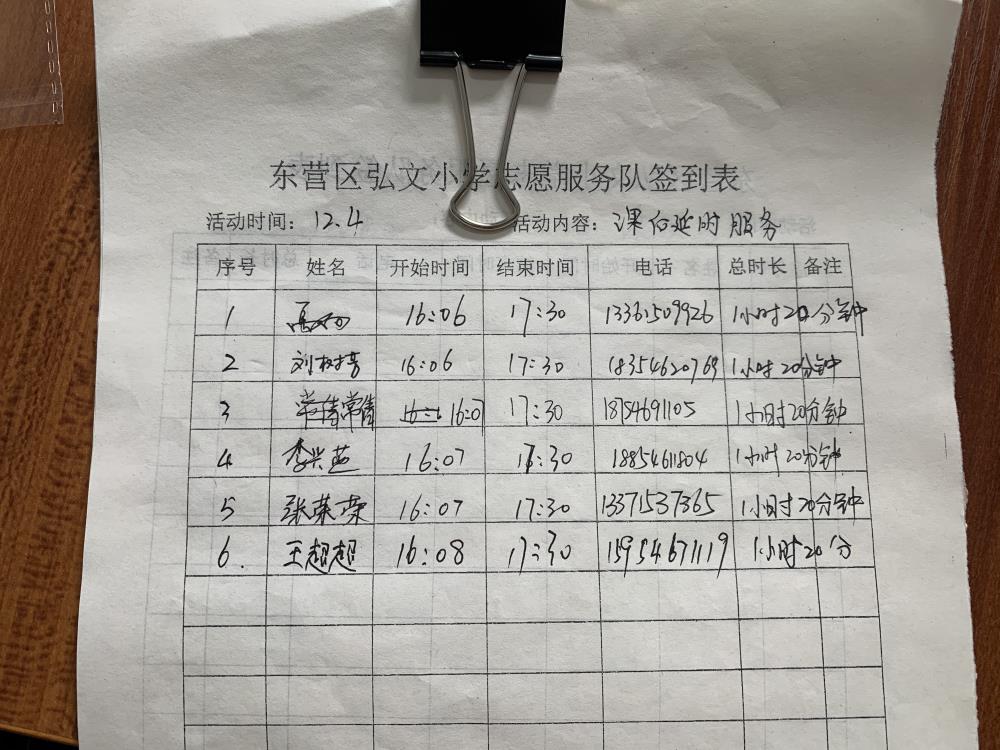 东营区弘文小学志愿服务队签到表
活动时间: 12.4 活动内容: 课后延时服务
序号 姓名 开始时间 结束时间 电话 总时长 备注
1 16:06 17:30 13361509926 1小时20分钟
2 刘树芳 16:06 17:30 18354620769 1小时20分钟
3 常倩 16:07 17:30 18754691105 1小时20分钟
4 李兴燕 16:07 17:30 18854611804 1小时20分钟
5 张荣荣 16:07 17:30 13371537365 1小时20分钟
6. 王超超 16:08 17:30 15954671119 1小时20分